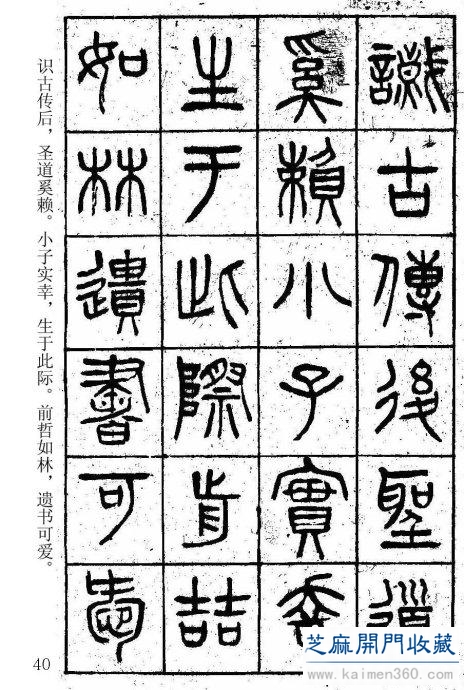 識古傳後聖道
奚賴小子實幸
生于此際前喆
如林遺書可愛
识古传后，圣道奚赖。小子实幸，生于此际。前哲如林，遗书可爱。
40
芝麻開門收藏
www.kaimen360.com